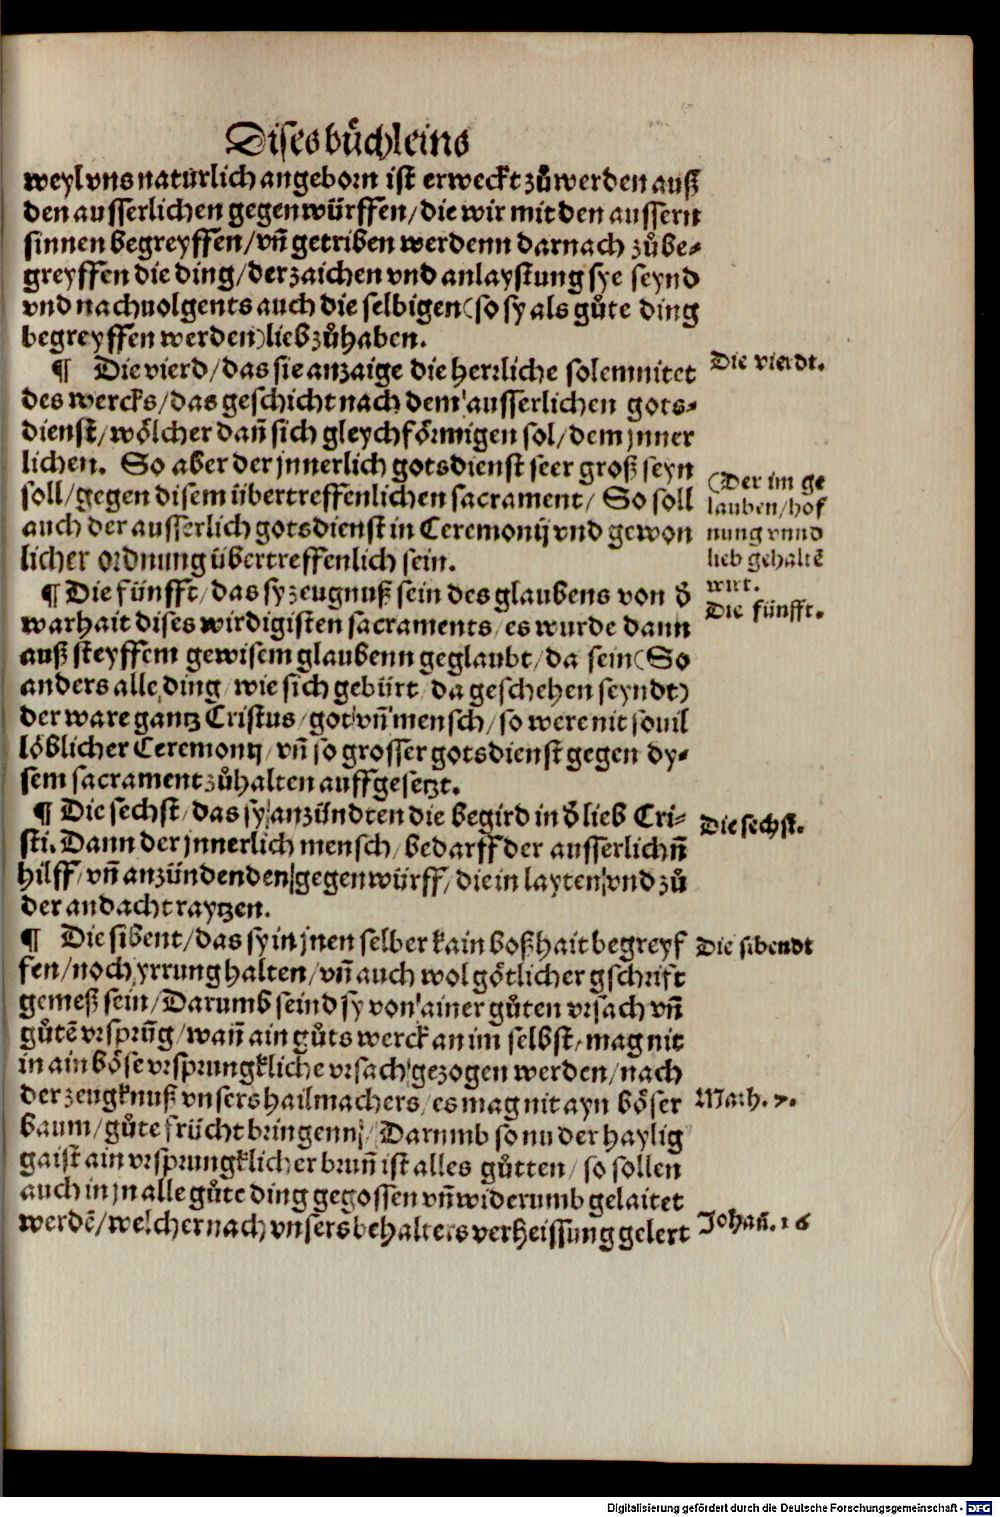 Dises bůchleins
weyl vns natürlich angeborn ist erweckt zů werden auß
den ausserlichen gegenwürffen/die wir mit den aussern
sinnen begreyffen/vn̄ getriben werdenn darnach zů be⸗
greyffen die ding/der zaichen vnd anlaystung sye seynd
vnd nachuolgents auch die selbigen(so sy als gůte ding
begreyffen werden)lieb zůhaben.
¶ Die vierd/das sie anzaige die herrliche solemnitet
Die vierdt.
des wercks/das geschicht nach dem ausserlichen gots⸗
dienst/wölcher dan̄ sich gleychförmigen sol/dem jnner
lichen. So aber der jnnerlich gotsdienst seer groß seyn
(Der im ge
soll/gegen disem übertreffenlichen sacrament/ So soll
lauben/hof
auch der ausserlich gotsdienst in Ceremonij vnd gewon
nung vnnd
licher ordnung übertreffenlich sein.
lieb gehaltē
wirt.
¶ Die fünfft/das sy zeugnuß sein des glaubens von d̄
Die fünfft.
warhait dises wirdigisten sacraments/es wurde dann
auß steyffem gewisem glaubenn geglaubt/da sein(So
anders alle ding/wie sich gebürt/da geschehen seyndt)
der ware gantz Cristus/got vn̄ mensch/so were nit souil
löblicher Ceremonij/vn̄ so grosser gotsdienst gegen dy⸗
sem sacrament zůhalten auffgesetzt.
¶ Die sechst/das sy anzündten die begird in d̄ lieb Cri⸗
Die sechst.
sti. Dann der jnnerlich mensch/bedarff der ausserlichn̄
hilff/vn̄ anzündenden gegenwürff/die in layten vnd zů
der andacht raytzen.
¶ Die sibent/das sy in jnen selber kain boßhait begreyf
Die sibendt
fen/noch yrrung halten/vn̄ auch wol götlicher gschrift
gemeß sein/Darumb seind sy von ainer gůten vrsach vn̄
gůtē vrsprūg/wan̄ ain gůts werck an im selbst/mag nit
in ain böse vrsprungkliche vrsach gezogen werden/nach
der zeugknuß vnsers hailmachers/es mag nit ayn böser
Math. 7.
baum/gůte frücht bringenn/Darumb so nu der haylig
gaist ain vrsprungklicher brun̄ ist alles gůtten/so sollen
auch in jn alle gůte ding gegossen vn̄ widerumb gelaitet
werdē/welcher nach vnsers behalters verheissung gelert
Johan̄. 16
Digitalisierung gefördert durch die Deutsche Forschungsgemeinschaft - DFG